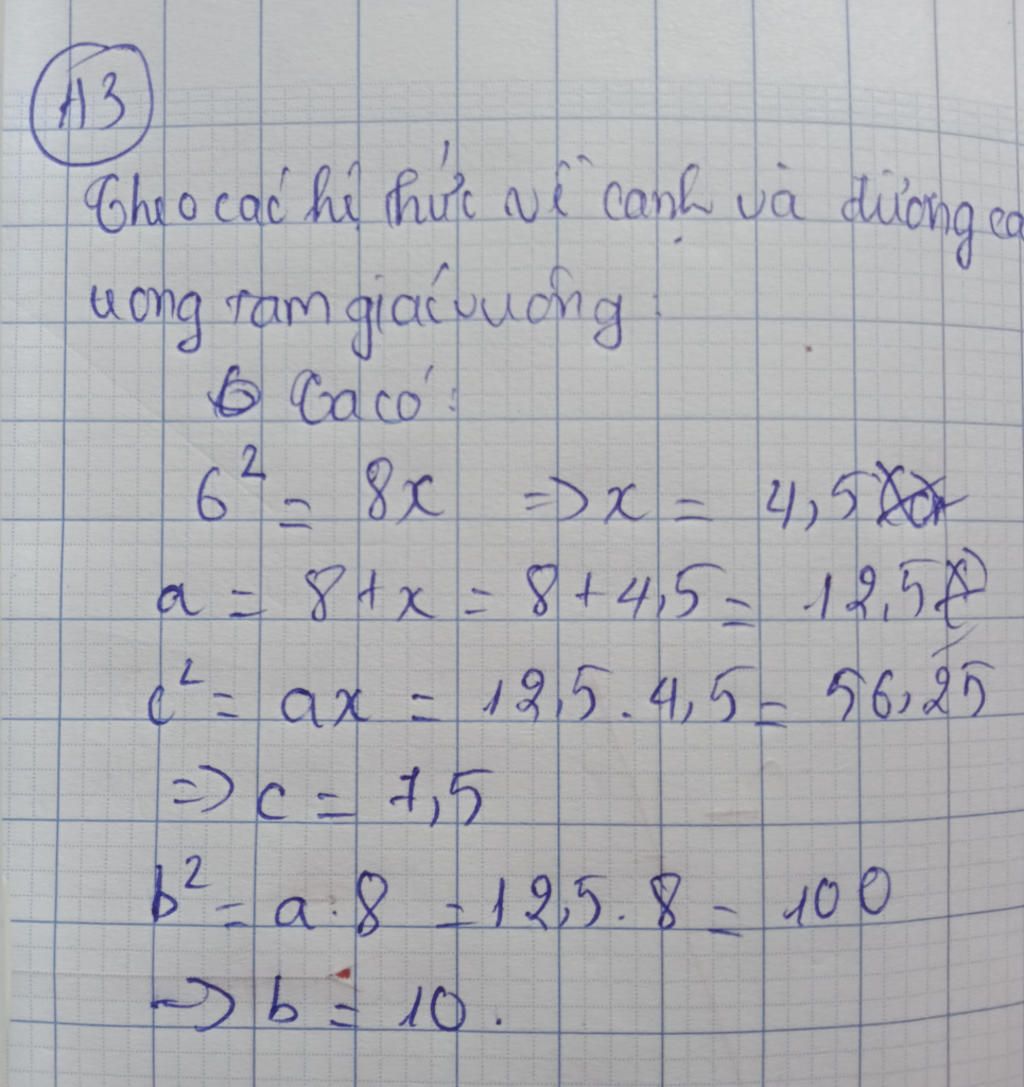 A3
Theo các hệ thức về cạnh và đường ca
uong tam giác vuông
Ta có:
6² = 8x => x = 4,5
a = 8 + x = 8 + 4,5 = 12,5
c² = ax = 12,5 . 4,5 = 56,25
=> c = 7,5
b² = a . 8 = 12,5 . 8 = 100
=> b = 10.